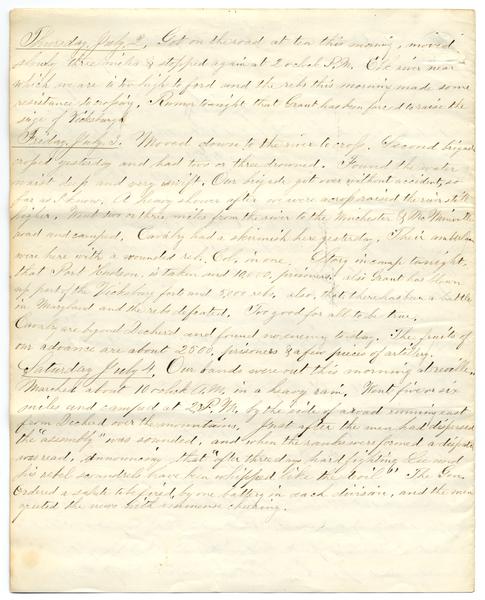 Thursday, July 2, Got on the road at ten this morning, moved
slowly three miles & stopped again at 2 o'clock P.M. Elk river near
which we are is too high to ford and the rebs this morning made some
resistance to crossing. Rumor tonight that Grant has been forced to raise the
siege of Vicksburg.
Friday, July 3. Moved down to the river to cross. Second brigade
crossed yesterday and had two or three drowned. Found the water
waist deep and very swift. Our brigade got over without accident, so
far as I know. A heavy shower after we were across raised the river still
higher. Went two or three miles from the river to the Winchester & McMinnville
road and camped. Cavalry had a skirmish here yesterday. Their ambulances
were here with a wounded reb. Col. in one. Story in camp tonight,
that Port Hudson is taken and 10,000, prisoners; also Grant has blown
up part of the Vicksburg fort and 5,000 rebs, also, that there has been a battle
in Maryland and the rebs defeated. Too good for all to be true.
Cavalry are beyond Decherd and found no enemy today. The fruits of
our advance are about 2500, prisoners & a few pieces of artillery.
Saturday July 4, Our bands were out this morning at reveille.
Marched about 10 o'clock A.M. in a heavy rain. Went five or six
miles and camped at 2 P.M. by the side of a road running east
from Decherd over the mountains. Just after the men had dispersed
the "assembly" was sounded, and when the ranks were formed a dispatch
was read, announcing that "after three days hard fighting Lee and
his rebel scoundrels have been whipped like the" The Gen.
ordered a salute to be fired, by one battery in each division, and the men
greeted the news with immense cheering.